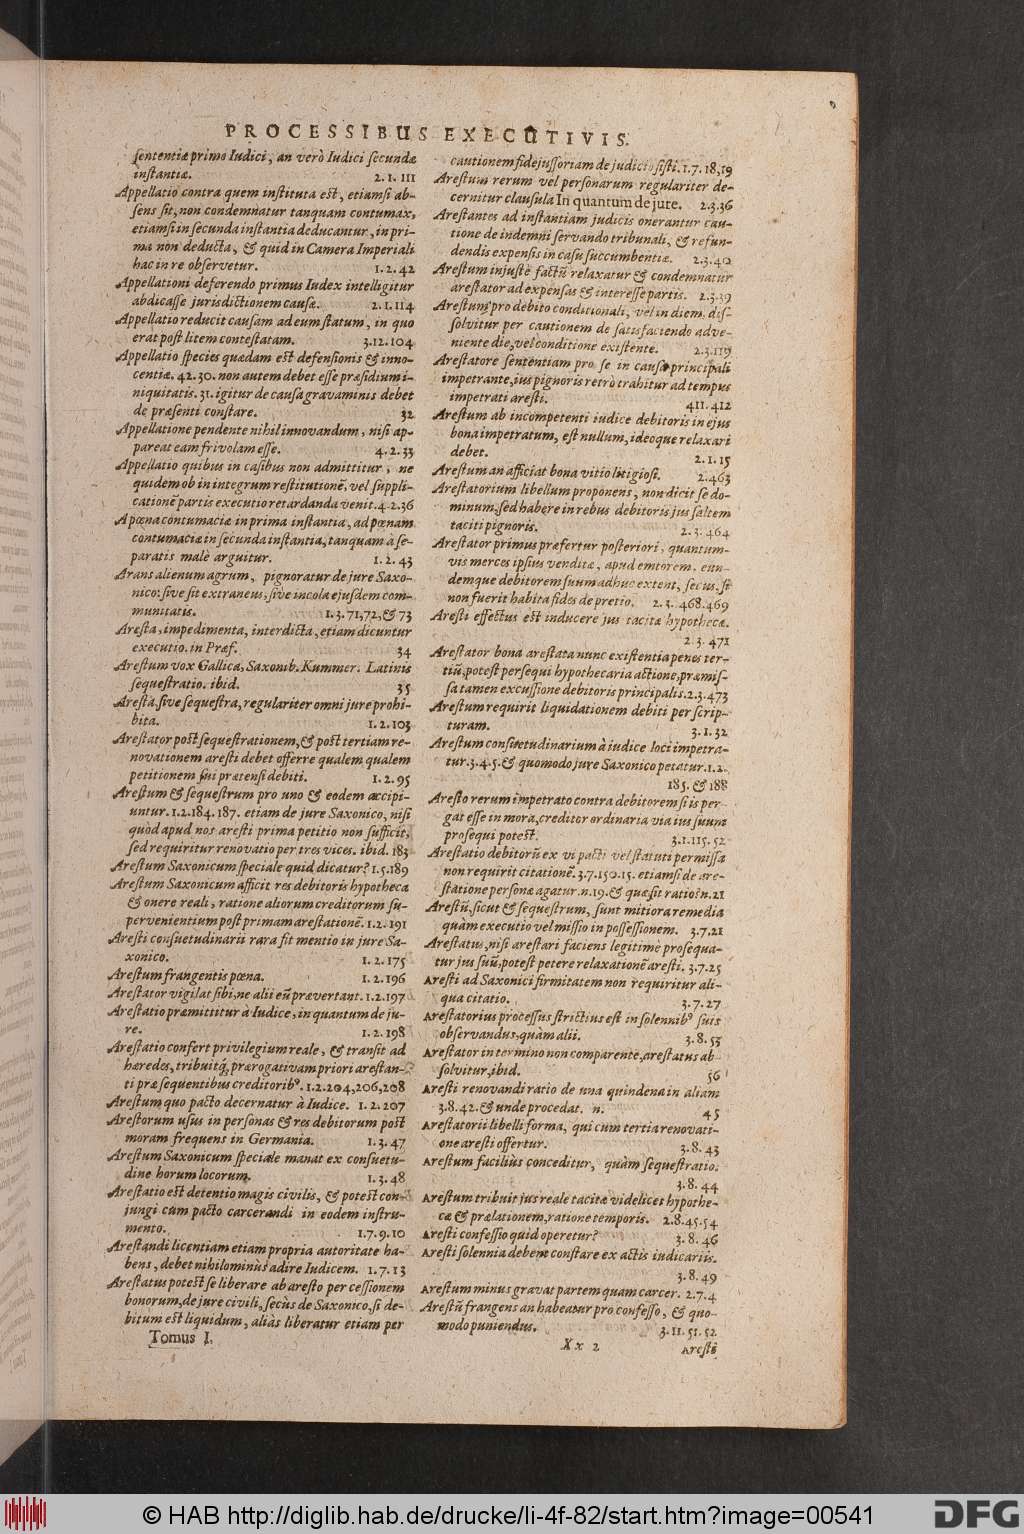 PROCESSIBUS EXECUTIVIS.
sententiæ primo Iudici, an verò Iudici secundæ
instantiæ. 2. 1. 111
Appellatio contra quem instituta est, etiamsi ab-
sens sit, non condemnatur tanquam contumax,
etiamsi in secunda instantia deducantur, in pri-
ma non deducta, & quid in Camera Imperiali
hac in re observetur. 1. 2. 42
Appellationi deferendo primus Iudex intelligitur
abdicasse jurisdictionem causæ. 2. 1. 114
Appellatio reducit causam ad eum statum, in quo
erat post litem contestatam. 3. 12. 104
Appellatio species quædam est defensionis & inno-
centiæ. 42. 30. non autem debet esse præsidium i-
niquitatis. 31. igitur de causa gravaminis debet
de præsenti constare. 32
Appellatione pendente nihil innovandum, nisi ap-
pareat eam frivolam esse. 4. 2. 33
Appellatio quibus in casibus non admittitur, ne
quidem ob in integrum restitutionē, vel suppli-
cationē partis executio retardanda venit. 4. 2. 36
A pœna contumaciæ in prima instantia, ad pœnam
contumaciæ in secunda instantia, tanquam à se-
paratis malè arguitur. 1. 2. 43
Arans alienum agrum, pignoratur de jure Saxo-
nico: sive sit extraneus, sive incola ejusdem com-
munitatis. 1. 3. 71, 72, & 73
Aresta, impedimenta, interdicta, etiam dicuntur
executio. in Præf. 34
Arestum vox Gallica, Saxonib. Kummer. Latinis
sequestratio. ibid. 35
Aresta sive sequestra, regulariter omni jure prohi-
bita. 1. 2. 103
Arestator post sequestrationem, & post tertiam re-
novationem aresti debet offerre qualem qualem
petitionem sui prætensi debiti. 1. 2. 95
Arestum & sequestrum pro uno & eodem accipi-
untur. 1. 2. 184. 187. etiam de jure Saxonico, nisi
quòd apud nos aresti prima petitio non sufficit,
sed requiritur renovatio per tres vices. ibid. 183
Arestum Saxonicum speciale quid dicatur? 1. 5. 189
Arestum Saxonicum afficit res debitoris hypotheca
& onere reali, ratione aliorum creditorum su-
pervenientium post primam arestationē. 1. 2. 191
Aresti consuetudinarii rara fit mentio in jure Sa-
xonico. 1. 2. 175
Arestum frangentis pœna. 1. 2. 196
Arestator vigilat sibi, ne alii eū prævertant. 1. 2. 197
Arestatio præmittitur à Iudice, in quantum de ju-
re. 1. 2. 198
Arestatio confert privilegium reale, & transit ad
hæredes, tribuitq́, prærogativam priori arestan-
ti præ sequentibus creditorib⁹. 1. 2. 204, 206, 208
Arestum quo pacto decernatur à Iudice. 1. 2. 207
Arestorum usus in personas & res debitorum post
moram frequent in Germania. 1. 3. 47
Arestum Saxonicum speciale manat ex consuetu-
dine horum locorum. 1. 3. 48
Arestatio est detentio magis civilis, & potest con-
jungi cum pacto carcerandi in eodem instru-
mento. 1. 7. 9. 10
Arestandi licentiam etiam propria autoritate ha-
bens, debet nihilominùs adire Iudicem. 1. 7. 13
Arestatus potest se liberare ab aresto per cessionem
bonorum, de jure civili, secùs de Saxonico, si de-
bitum est liquidum, aliàs liberatur etiam per
Tomus I.
cautionem fidejussoriam de judicio sisti. 1. 7. 18, 19
Arestum rerum vel personarum regulariter de-
cernitur clausula In quantum de jure. 2. 3. 36
Arestantes ad instantiam judicis onerantur cau-
tione de indemni servando tribunali, & refun-
dendis expensis in casu succumbentiæ. 2. 3. 40
Arestum injustè factū relaxatur & condemnatur
arestator ad expensas & interesse partis. 2. 3. 39
Arestum pro debito conditionali, vel in diem, dis-
solvitur per cautionem de satisfaciendo adve-
niente die, vel conditione existente. 2. 3. 119
Arestatore sententiam pro se in causa principali
impetrante, ius pignoris retrò trahitur ad tempus
impetrati aresti. 411. 412
Arestum ab incompetenti iudice debitoris in ejus
bona impetratum, est nullum, ideoque relaxari
debet. 2. 1. 15
Arestum an afficiat bona vitio litigiosi. 2. 463
Arestatorium libellum proponens, non dicit se do-
minum, sed habere in rebus debitoris jus saltem
taciti pignoris. 2. 3. 464
Arestator primus præfertur posteriori, quantum-
vis merces ipsius venditæ, apud emtorem, eun-
demque debitorem suum adhuc extent, secus, si
non fuerit habita fides de pretio. 2. 3. 468. 469
Aresti effectus est inducere jus tacitæ hypothecæ.
2. 3. 471
Arestator bona arestata nunc existentia penes ter-
tiū, potest persequi hypothecaria actione, præmis-
sa tamen excussione debitoris principalis. 2. 3. 473
Arestum requirit liquidationem debiti per scrip-
turam. 3. 1. 32
Arestum consuetudinarium à iudice loci impetra-
tur. 3. 4. 5. & quomodo jure Saxonico petatur. 1. 2.
185. & 188
Aresto rerum impetrato contra debitorem si is per-
gat esse in mora, creditor ordinaria via ius suum
prosequi potest. 3. 1. 115. 52
Arestatio debitorū ex vi pacti vel statuti permissa
non requirit citationē. 3. 7. 150. 15. etiamsi de are-
statione personæ agatur. n. 19. & quæsit ratio: n. 21
Arestū, sicut & sequestrum, sunt mitiora remedia
quàm executio vel missio in possessionem. 3. 7. 21
Arestatus, nisi arestari faciens legitimè prosequa-
tur jus suū, potest petere relaxationē aresti. 3. 7. 25
Aresti ad Saxonici firmitatem non requiritur ali-
qua citatio. 3. 7. 27
Arestatorius processus strictius est in solennib⁹ suis
observandus, quàm alii. 3. 8. 53
Arestator in termino non comparente, arestatus ab-
solvitur, ibid. 56
Aresti renovandi ratio de una quindena in aliam
3. 8. 42. & unde procedat. n. 45
Arestatorii libelli forma, qui cum tertia renovati-
one aresti offertur. 3. 8. 43
Arestum faciliùs conceditur, quàm sequestratio.
3. 8. 44
Arestum tribuit jus reale tacitæ videlicet hypothe-
cæ & prælationem, ratione temporis. 2. 8. 45. 54
Aresti confessio quid operetur? 3. 8. 46
Aresti solennia debent constare ex actis iudicariis.
3. 8. 49
Arestum minus gravat partem quam carcer. 2. 7. 4
Arestū frangens an habeatur pro confesso, & quo-
modo puniendus. 3. 11. 51. 52
Xx 2
Aresti
© HAB http://diglib.hab.de/drucke/li-4f-82/start.htm?image=00541
DFG